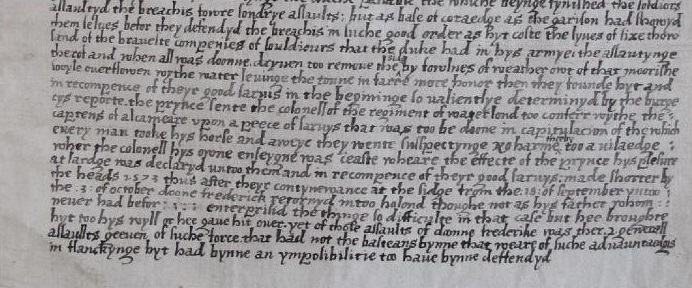 the whiche beynge fynished the soldiors
assaultyd the breachis towre sondrye assaults: but as base of coraedge as the garison had shewyd
them selves befor they defendyd the breachis in suche good order as hyt coste the lyves of sixe thow
sand of the bravelte compenies of souldieurs that the duke had in hys armye: the assautynge
therof and when all was doonne dryven too remove the by fowlnes of weather owt of that moorishe
soyle overflowen wythe water levinge the towne in farre more honor then they founde hyt and
in recompence of theyr good sarvis in the begininge so valientlye determinyd by the
cys reporte. the prynce sente the colonell of the regiment of waterlond too conferr wythe the
captens of alcameare upon a peece of sarvys that was too be doone in capitulacion of the which
every man tooke hys horse and awaye they wente suspectynge no harme thereby too a vilaedge
wher the colonell hys owne enseygne was ceaste wheare the effecte of the prynce hys plesure
at lardge was declaryd untoo them and in recompence of theyr good sarvys: made shorter by
the heads 1573 thus after theyr contynewance at the sidge from the 18: of september untoo
the :3: of october doone frederick retornyd intoo holond thoughe not as hys father whom
never had befor enterprisid the thinge so difficulte in that case but hee broughte
hyt too hys wyll or hee gave hit over. yet of those assaults of donne frederike was ther 2 generell
assaullts geeven of suche force that had not the basteans bynne that weare of suche advauntadgis
in flanckynge hyt had bynne an ympossibilitie too have bynne deffendyd